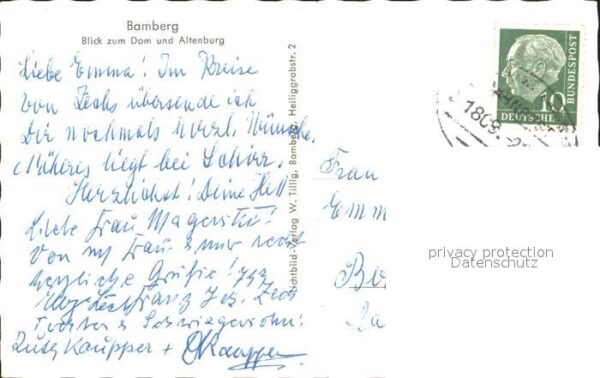 Bamberg
Blick zum Dom und Altenburg
Liebe Emma! Im Kreise
von Zechs übersende ich
Dir nochmals herzl. Wünsche.
Näheres liegt bei
Herzlichst! Deine
Liebe Frau
von m Frau & mir recht
herzliche Grüße!
Franz Jos. Zech
Tochter & Schwiegersohn:
Kaupper +
Lichtbild-Verlag W. Tillig, Bamberg, Heiliggrabstr. 2
Frau
Emm
Bi
La
10
DEUTSCHE
BUNDESPOST
1809.
privacy protection
Datenschutz